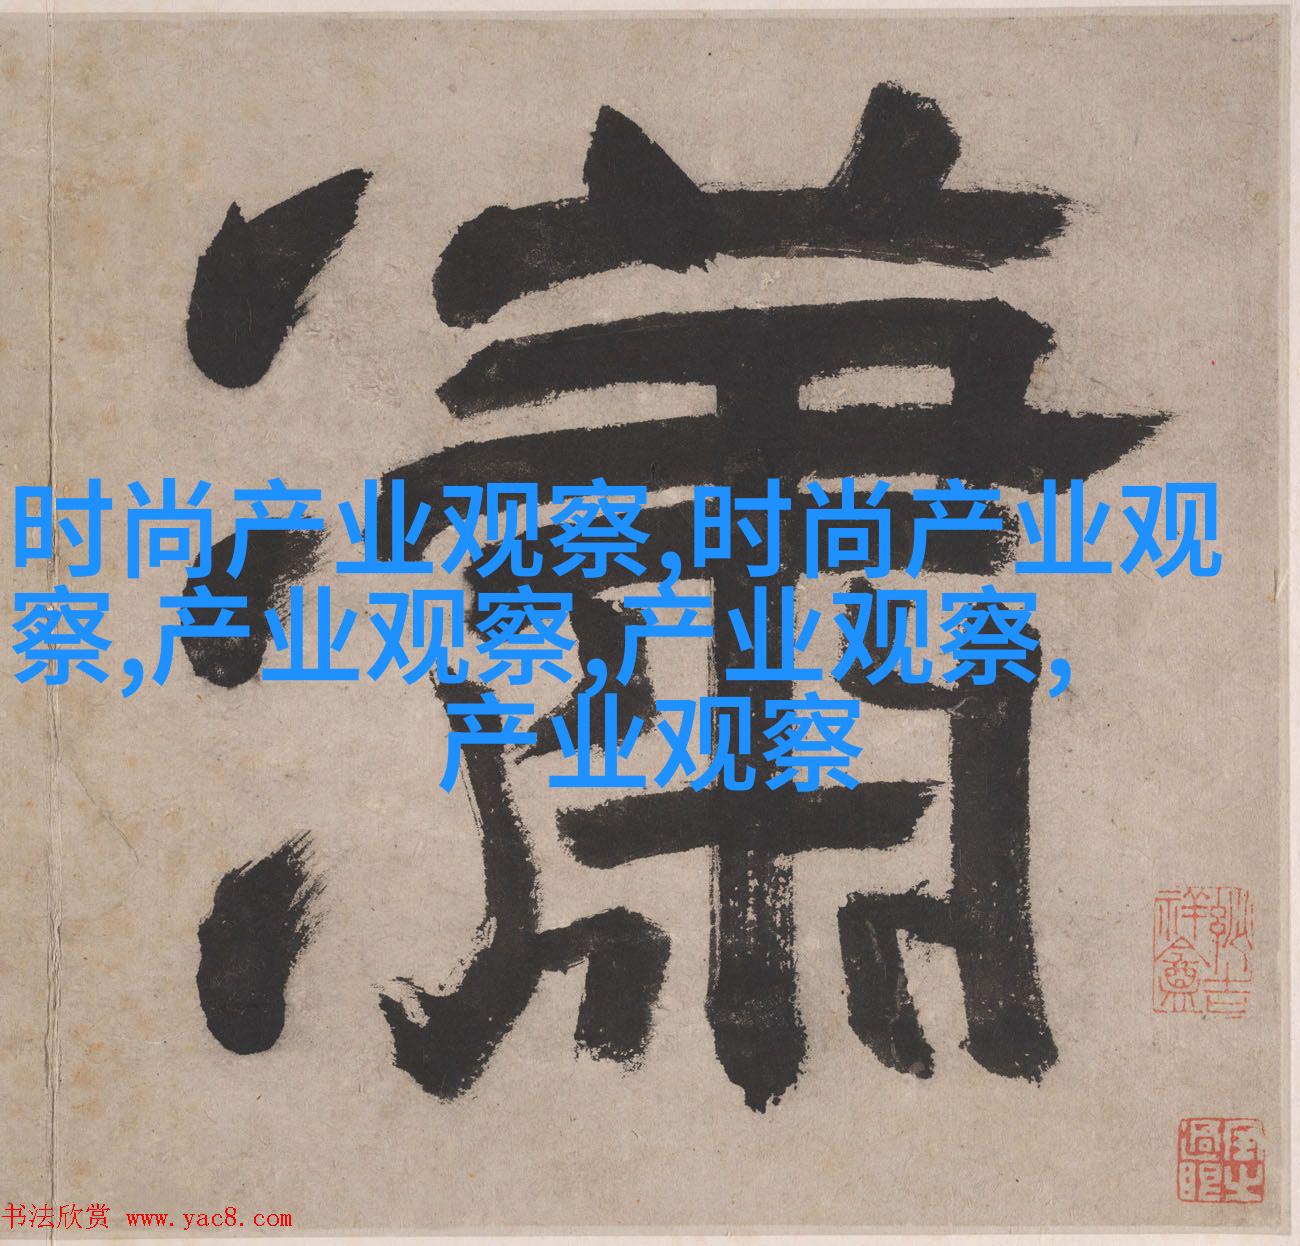 瀟
时尚产业观察,时尚产业观
察,产业观察,产业观察,
产业观察
书法欣赏 www.yac8.com